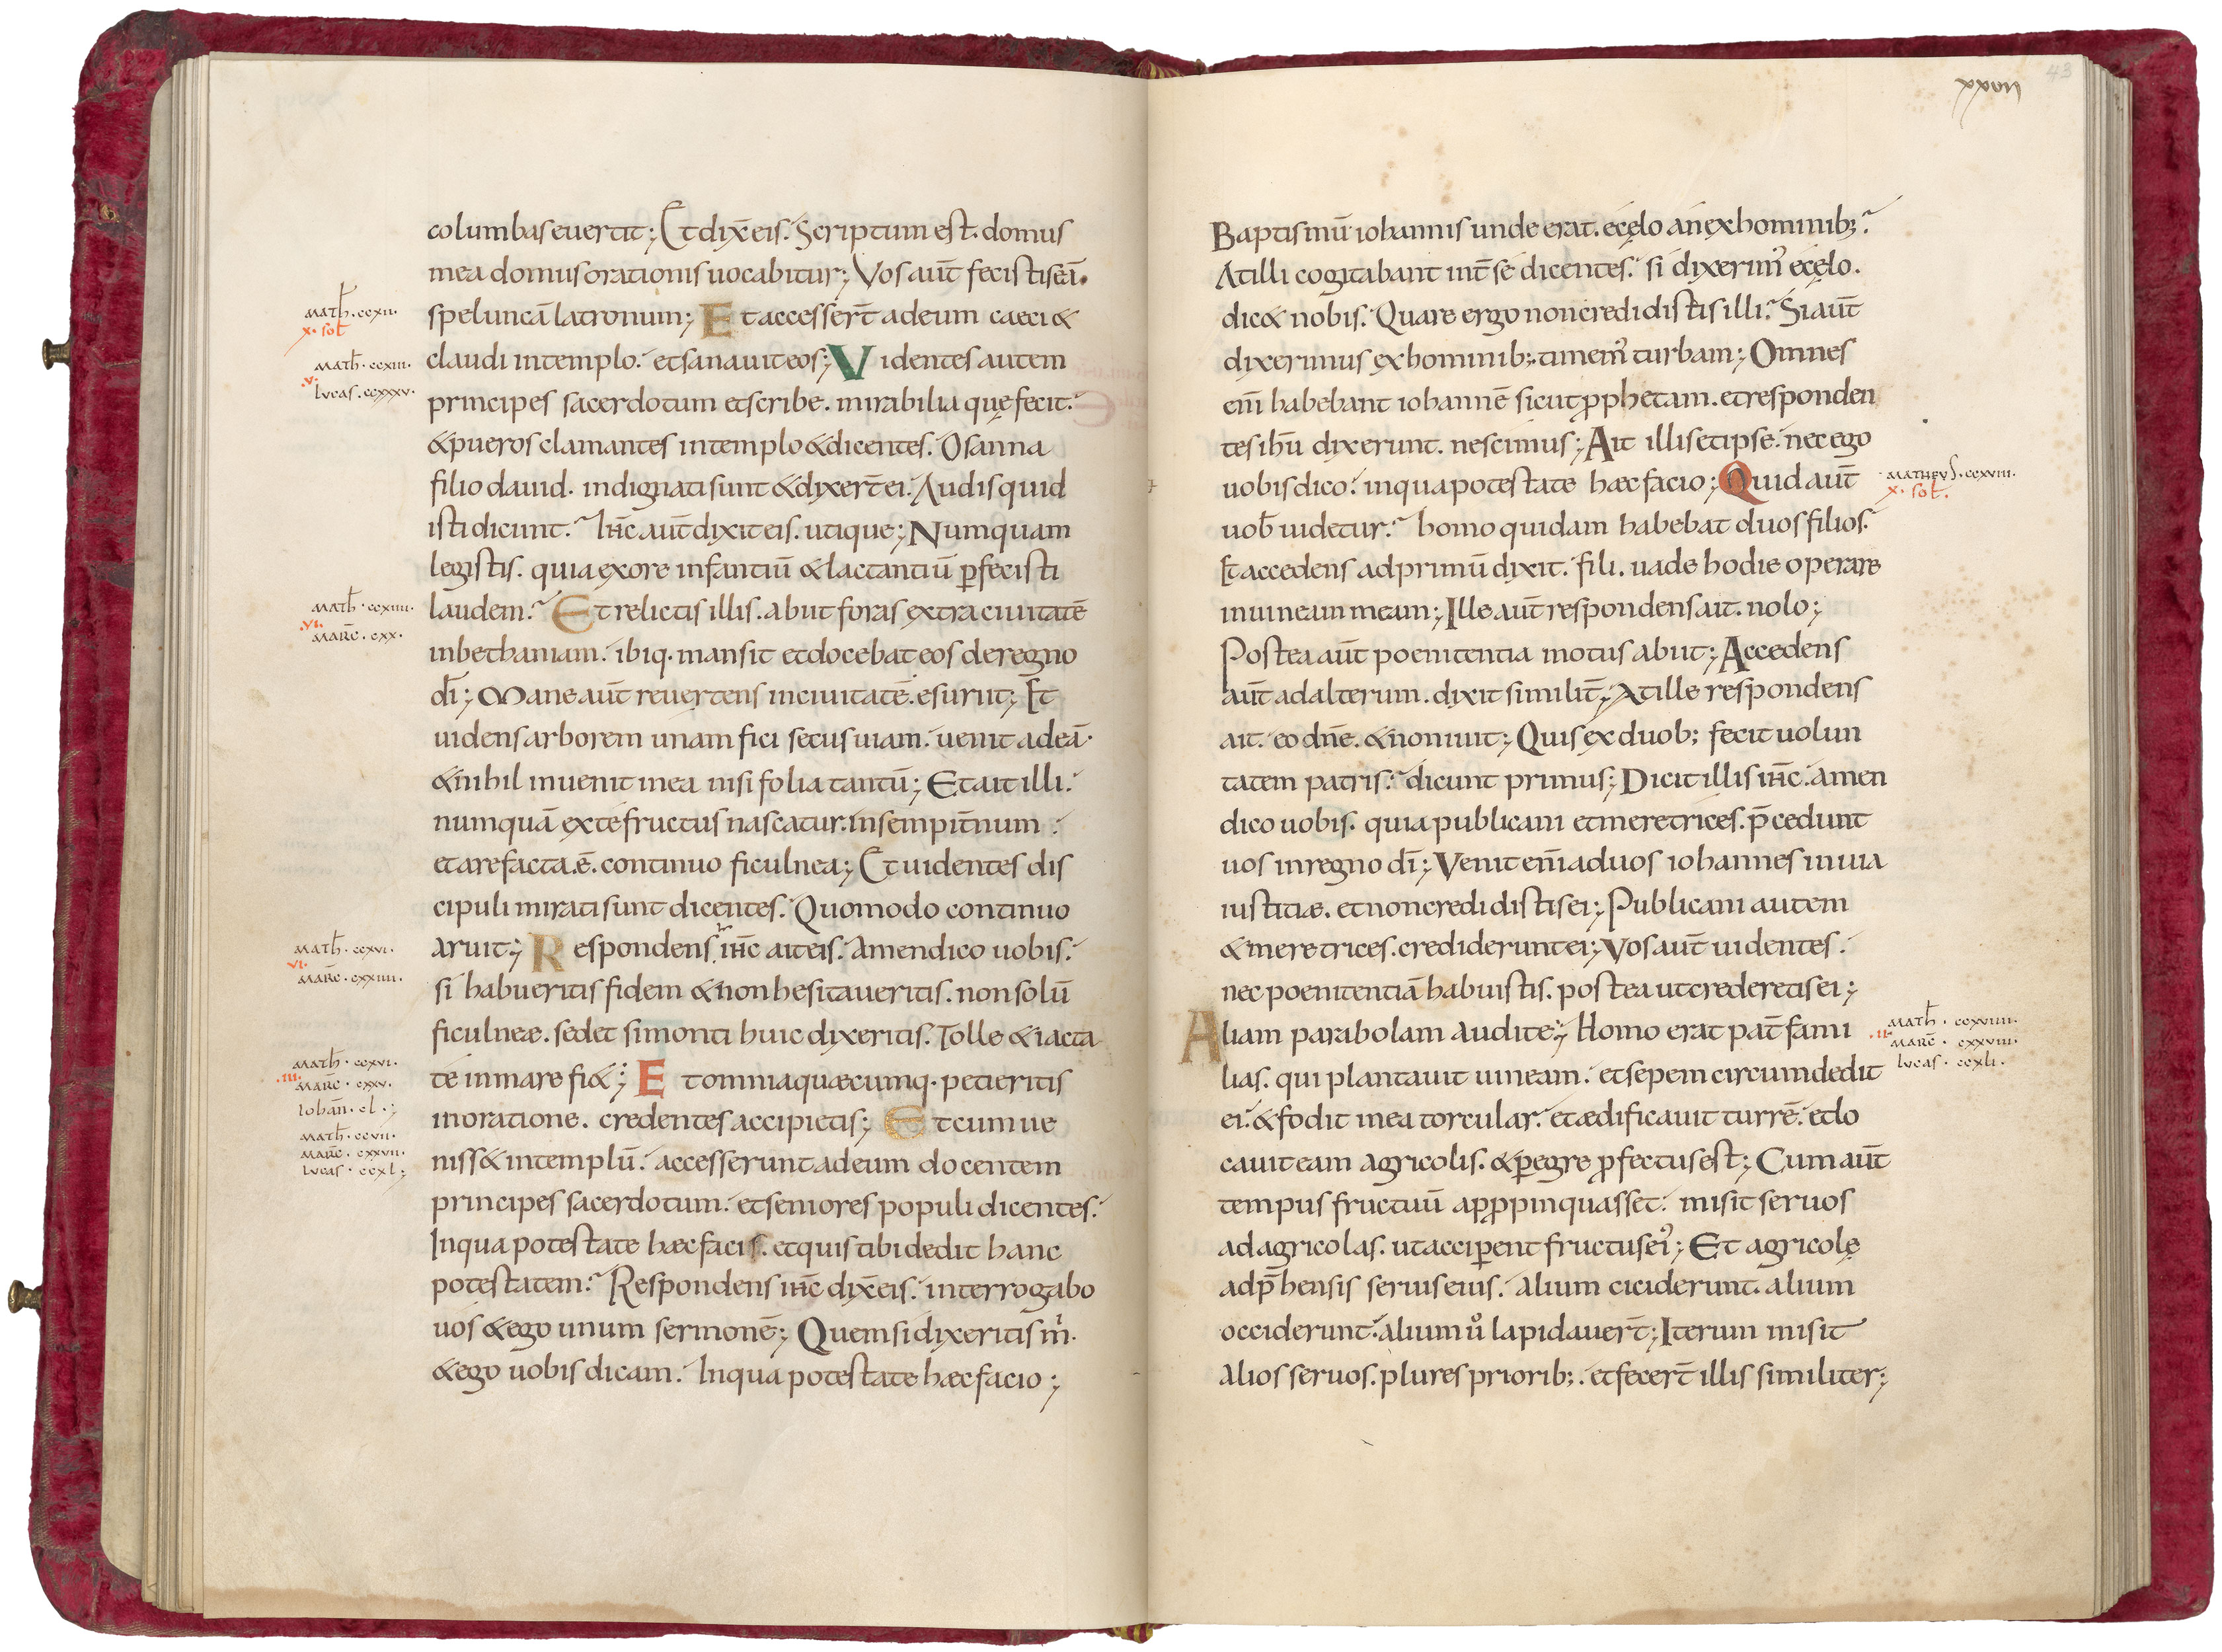 columbas euertit; Et dix̄ eis. Scriptum est. domus
mea domus orationis uocabitur; Vos aut̄ fecistis eā.
speluncā latronum; Et accesser̄t ad eum caeci &
claudi in templo. et sanauit eos; Videntes autem
principes sacerdotum et scribe. mirabilia quę fecit.
& pueros clamantes in templo & dicentes. Osanna
filio dauid. indignati sunt & dixer̄t ei. Audis quid
isti dicunt? ih̄c aut̄ dixit eis. utique; Numquam
legistis. quia ex ore infantiū & lactantiū ꝑfecisti
laudem? Et relictis illis. abiit foras extra ciuitatē
in bethaniam. ibiq. mansit et docebat eos de regno
dī; Mane aut̄ reuertens in ciuitatē. esuriit; Et
uidens arborem unam fici secus uiam. uenit ad eā.
& nihil inuenit in ea nisi folia tantū; Et ait illi.
numquā ex te fructus nascatur. in sempit̄num.
et arefacta .ē. continuo ficulnea; Et uidentes dis
cipuli mirati sunt dicentes. Quomodo continuo
aruit; Respondens ih̄c ait eis. Amen dico uobis.
si habueritis fidem & non hesitaueritis. non solū
ficulneæ. sed et si monti huic dixeritis. Tolle & iacta
te in mare fi&; Et omnia quæcumq. petieritis
in oratione. credentes accipietis; Et cum ue
niss& in templū. accesserunt ad eum docentem
principes sacerdotum. et seniores populi dicentes.
In qua potestate hæc facis. et quis tibi dedit hanc
potestatem? Respondens ih̄c dix̄ eis. interrogabo
uos & ego unum sermonē; Quem si dixeritis m̍.
& ego uobis dicam. In qua potestate hæc facio;
MATH̄. ccxii.
x. sol̄
MATH̄. ccxiii.
.v.
lvcas. ccxxxv.
MATH̄. ccxiiii.
.vi.
MARC̄. cxx.
MATH̄. ccxvi.
vi.
MARC̄. cxxiiii.
MATH̄. ccxvi.
.iii.
MARC̄. cxxv.
Iohan̄. cl.;
MATH̄. ccvii.
MARC̄. cxxvii.
lvcas. ccxl;
xxviii
43
Baptismū iohannis unde erat. e cęlo an ex hominib;?
At illi cogitabant int̄ se dicentes. si dixerim᾽ e cęlo.
dic& nobis. Quare ergo non credidistis illi? Si aut̄
dixerimus ex hominib;. timem᾽ turbam; Omnes
eni̅ habebant iohannē sicut ꝓphetam. et responden
tes ihū dixerunt. nescimus; Ait illis et ipse. nec ego
uobis dico. in qua potestate hæc facio; Quid aut̄
uob̄ uidetur? homo quidam habebat duos filios.
Et accedens ad primū dixit. fili. uade hodie operare
in uineam meam; Ille aut̄ respondens ait. nolo;
Postea aut̄ poenitentia motus abiit; Accedens
aut̄ ad alterum. dixit similit̄; At ille respondens
ait. eo dn̄e. & non iuit; Quis ex duob; fecit uolun
tatem patris? dicunt primus; Dicit illis ih̄c. amen
dico uobis. quia publicani et meretrices. p̄cedunt
uos in regno dī; Venit eni̅ ad uos iohannes in uia
iustitiæ. et non credidistis ei; Publicani autem
& meretrices. crediderunt ei; Vos aut̄ uidentes.
nec poenitentiā habuistis. postea ut crederetis ei;
Aliam parabolam audite; Homo erat pat̄ fami
lias. qui plantauit uineam. et sepem circumdedit
ei. & fodit in ea torcular. et ædificauit turrē. et lo
cauit eam agricolis. & ꝑegre ꝓfectus est; Cum aut̄
tempus fructuū apꝓpinquasset. misit seruos
ad agricolas. ut acciꝑent fructus ei᾽; Et agricolę
adp̄hensis seruis eius. alium ciciderunt. alium
occiderunt. alium u᾽ lapidauer̄t; Iterum misit
alios seruos. plures priorib;. et fecer̄t illis similiter;
MATHEVS. ccxviii.
x. sol̄.
MATH̄. ccxviiii.
.ii.
MARC̄. cxxviii.
lvcas. ccxli.